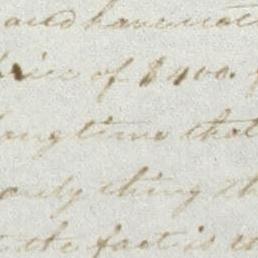 and have not
price of $400.
long time that
only thing th
the fact is th